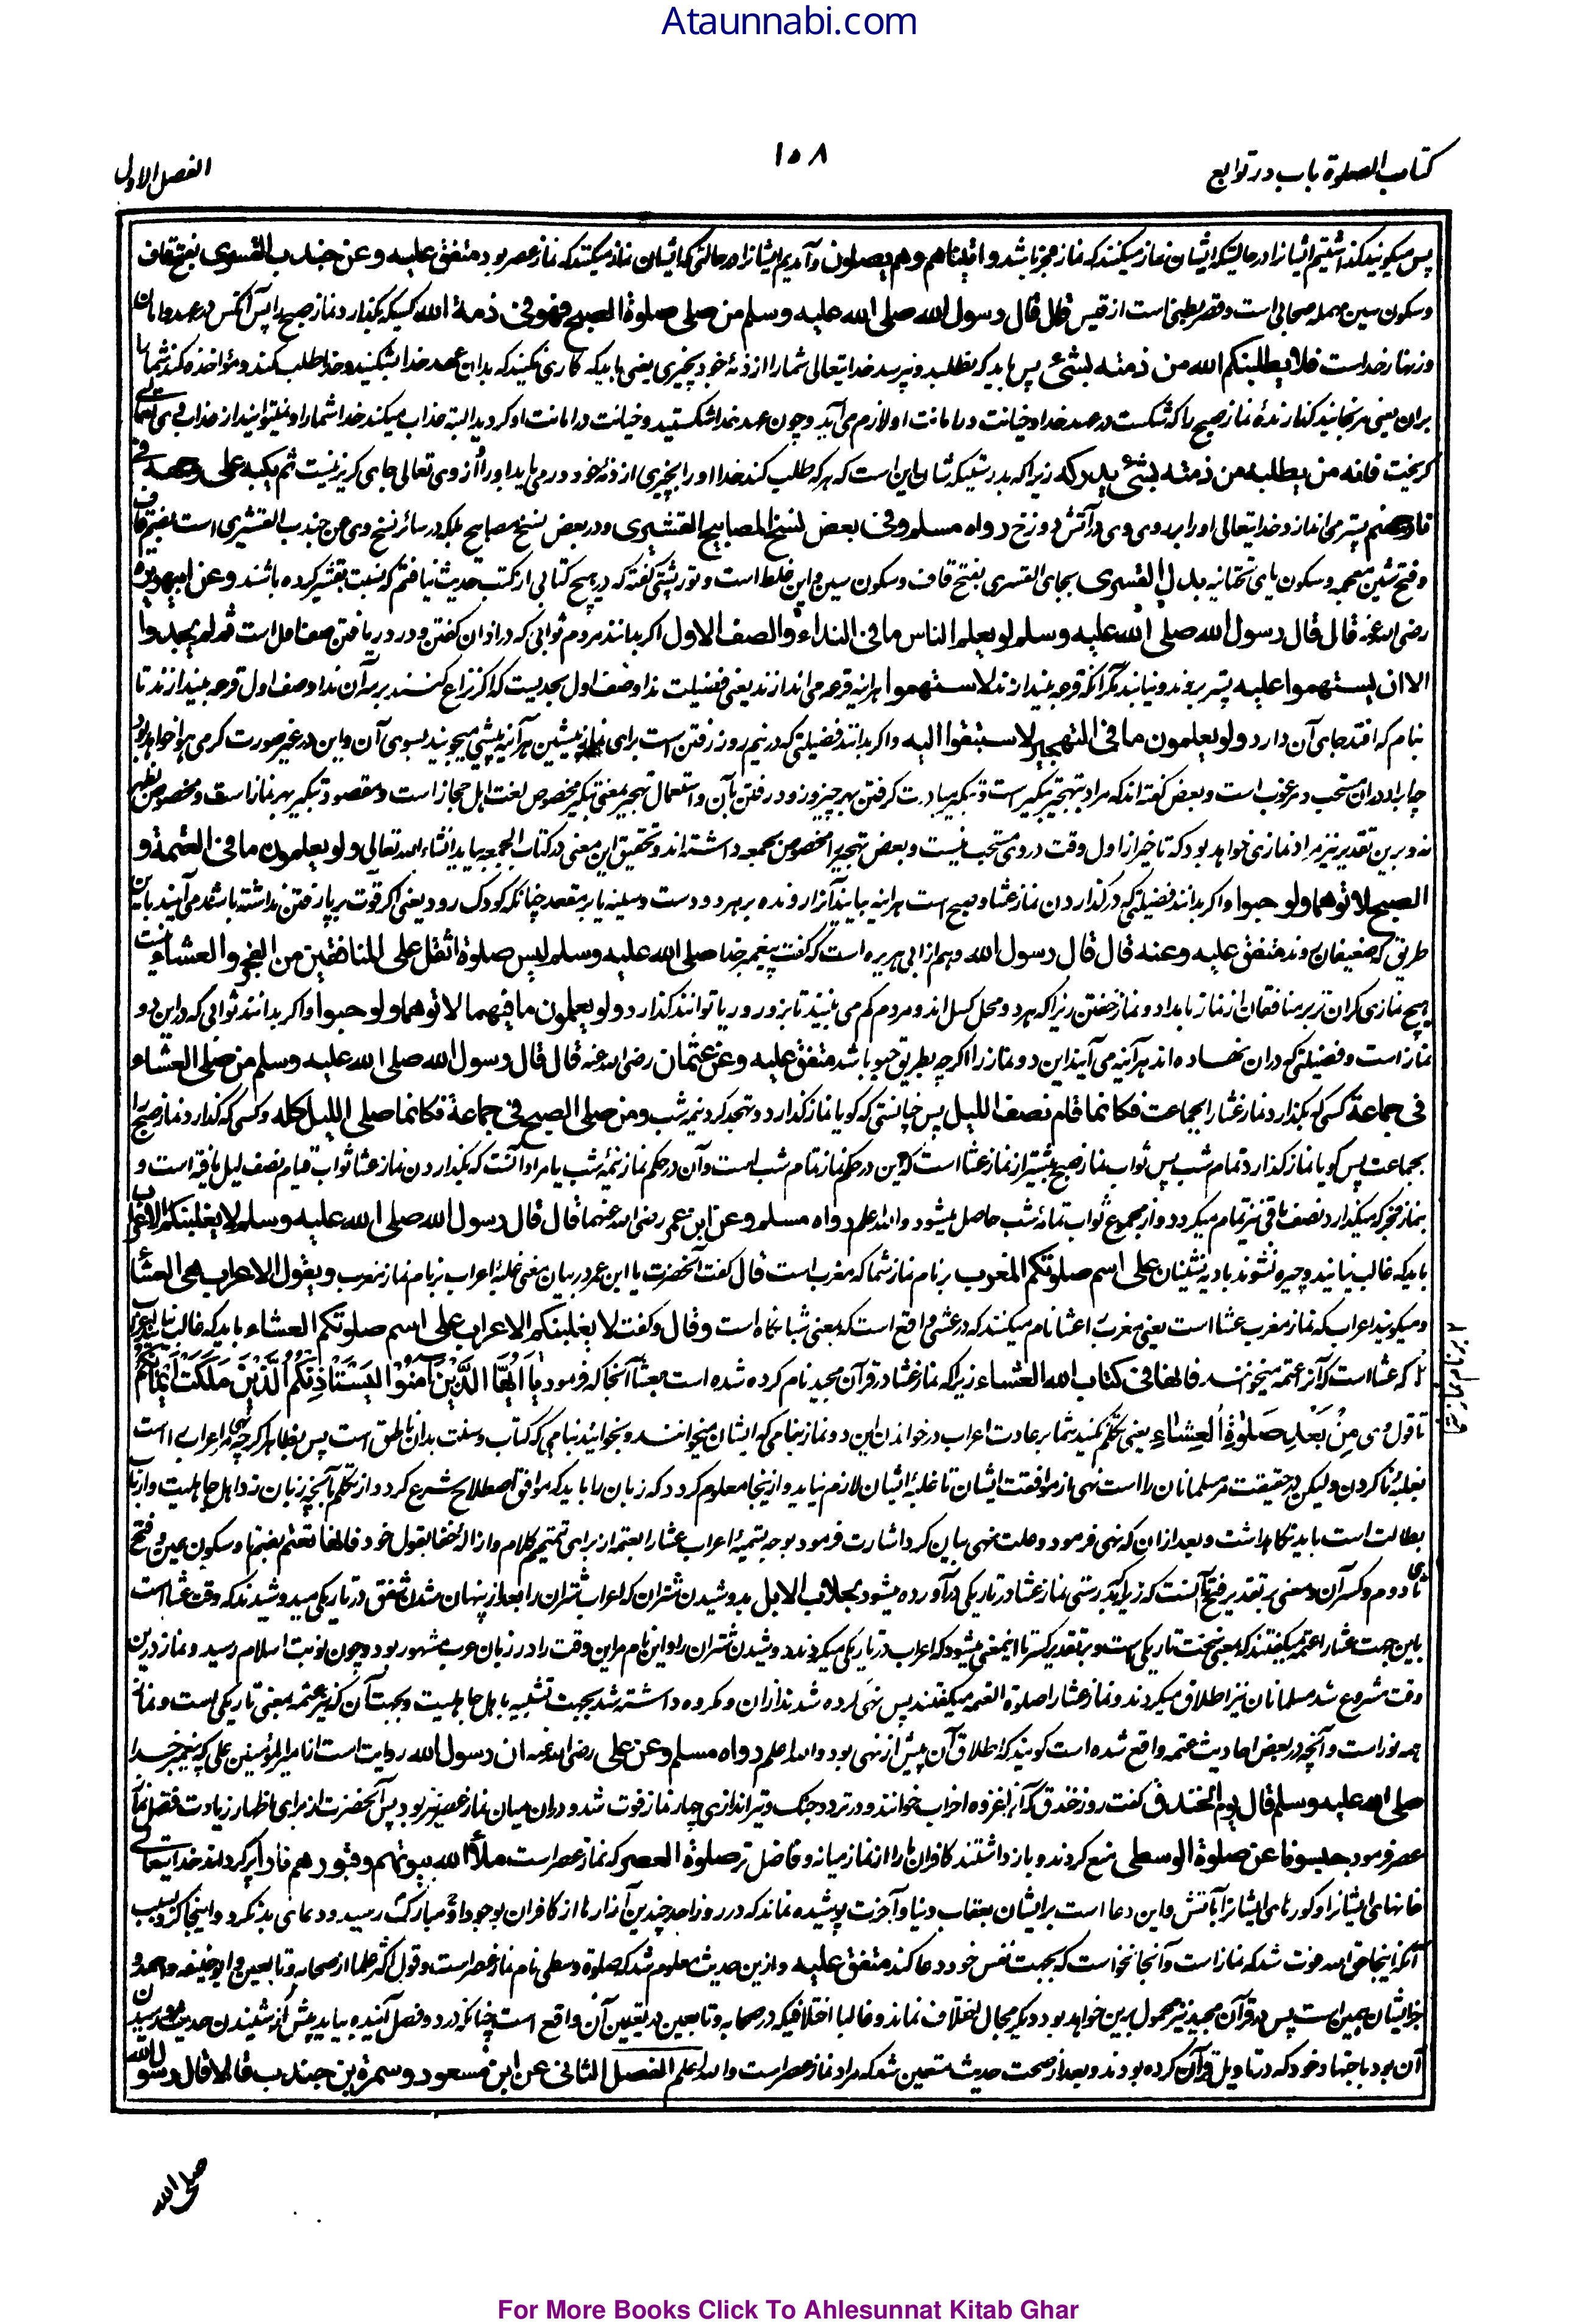 Ataunnabi.com
کتاب الصلوة باب در توابع
۱۵۸
الفصل الاول
پس میگویند گذاشتیم ایشانرا در حالیکه ایشان نماز میکنند که نماز فجر باشد و اتیناهم وهم یصلون و آمدیم ایشانرا در حالتی که ایشان نماز میکنند که نماز عصر بود متفق علیه وعن جندب القسری بفتح قاف
وسکون سین مهمله صحابی است وقسر بطنی است از قیس قال قال رسول الله صلی الله علیه وسلم من صلی صلوة الصبح فهو فی ذمة الله کسیکه بگذارد نماز صبح را پس آنکس در عهد و امان
وزنهار خداست فلا یطلبنکم الله من ذمته بشئ پس باید که نطلبد و نپرسد خدایتعالی شما را از ذمهٔ خود بچیزی یعنی باید که کاری نکنید که بدان عهد خدا بشکنید و خدا طلب کند و مؤاخذه کند شما را
بران یعنی مرنجانید گذارندهٔ نماز صبح را که شکست در عهد خدا و خیانت در امانت او لازم می آید و چون عهد خدا شکستید و خیانت در امانت او کردید البته عذاب میکند خدا شما را و نمیتوانید از عذاب وی
گریخت فانه من یطلبه من ذمته بشئ یدرکه زیرا که بدرستیکه شان این است که هر که طلب کند خدا او را بچیزی از ذمهٔ خود در می یابد او را و از وی تعالی جای گریز نیست ثم یکبه علی وجهه فی
نار جهنم پستر می اندازد خدایتعالی او را بر روی وی در آتش دوزخ رواه مسلم وفی بعض نسخ المصابیح القشیری و در بعض نسخ مصابیح بلکه در سائر نسخ وی عن جندب القشیری است بضم قاف
و فتح شین معجمه وسکون یای تحتانیه بدل القسری بجای القسری بفتح قاف وسکون سین و این غلط است و تورپشتی گفته که در هیچ کتابی از کتب حدیث نیافتم که نسبت بقشیر کرده باشند وعن ابی هریرة
رضی الله عنه قال قال رسول الله صلی الله علیه وسلم لو یعلم الناس ما فی النداء والصف الاول اگر بدانند مردم ثوابی که در اذان گفتن و در دریافتن صف اول است ثم لم یجدوا
الا ان یستهموا علیه پستر بروند و نیابند مگر آنکه قرعه بیندازند لاستهموا هر آینه قرعه می اندازند یعنی فضیلت ندا و صف اول بحدیست که اگر نزاع کنند بر سر آن ندا و صف اول قرعه بیندازند تا
بنام که افتد جای آن دارد ولو یعلمون ما فی التهجیر لاستبقوا الیه و اگر بدانند فضیلتی که در نیم روز رفتن است برای نماز پیشین هر آینه پیشی میجویند بسوی آن و این در غیر صورت گرمی هوا خواهد بود
چه ابراد دران مستحب و مرغوب است و بعض گفته اند که مراد بتهجیر تبکیر است و تبکیر مبادرت گرفتن بهر چیز و زود رفتن بآن و استعمال تهجیر بمعنی تبکیر مخصوص لغت اهل حجاز است و مقصود تبکیر بهر نماز است و مخصوص بظهر
نه و برین تقدیر نیز مراد نمازی خواهد بود که تاخیر از اول وقت در وی مستحب نیست و بعض تهجیر را مخصوص بجمعه داشته اند و تحقیق این معنی در کتاب الجمعه بیاید انشاء الله تعالی ولو یعلمون ما فی العتمة و
الصبح لاتوهما ولو حبوا و اگر بدانند فضیلتی که در گذاردن نماز عشا و صبح است هر اینه بیایند آنرا رونده بر هر دو دست و سینه یا بر مقعد چنانکه کودک رود یعنی اگر قوت بر پا رفتن نداشته باشند می آیند باین
طریق که ضعیفان روند متفق علیه وعنه قال قال رسول الله و هم از ابی هریره است که گفت پیغمبر خدا صلی الله علیه وسلم لیس صلوة اثقل علی المنافقین من الفجر والعشاء نیست
هیچ نمازی گران تر بر منافقان از نماز بامداد و نماز خفتن زیرا که هر دو محل کسل اند و مردم کم می بینند تا بزور و ریا توانند گذارد ولو یعلمون ما فیهما لاتوهما ولو حبوا و اگر بدانند ثوابی که در این دو
نماز است و فضیلتی که دران نهاده اند هر آینه می آیند این دو نماز را اگر چه بطریق حبو باشد متفق علیه وعن عثمان رضی الله عنه قال قال رسول الله صلی الله علیه وسلم من صلی العشاء
فی جماعة کسی که بگذارد نماز عشا را بجماعت فکانما قام نصف اللیل پس چنانستی که گویا نماز گذارد و تهجد کرد نیمه شب ومن صلی الصبح فی جماعة فکانما صلی اللیل کله و کسی که گذارد نماز صبح را
بجماعت پس گویا نماز گذارد تمام شب پس ثواب نماز صبح بیشتر از نماز عشا است که این در حکم نماز تمام شب است و آن در حکم نماز نیمهٔ شب یا مراد آنست که بگذاردن نماز عشا ثواب قیام نصف لیل یافته است و
بنماز فجر که میگذارد نصف باقی نیز تمام میگردد و از مجموع ثواب تمامهٔ شب حاصل میشود والله اعلم رواه مسلم وعن ابن عمر رضی الله عنهما قال قال رسول الله صلی الله علیه وسلم لا یغلبنکم الاعراب
باید که غالب نیایند و چیره نشوند بادیه نشینان علی اسم صلوتکم المغرب بر نام نماز شما که مغرب است قال گفت آنحضرت یا ابن عمر در بیان معنی غلبهٔ اعراب بر نام نماز مغرب ویقول الاعراب هی العشاء
و میگویند اعراب که نماز مغرب عشا است یعنی مغرب را عشا نام میکنند که در عشی واقع است که بمعنی شبانگاه است وقال و گفت لا یغلبنکم الاعراب علی اسم صلوتکم العشاء باید که غالب نیایند اعراب
که عشا است که آنرا عتمه میخوانند فانها فی کتاب الله العشاء زیرا که نماز عشا در قرآن مجید نام کرده شده است بعشا آنجا که فرمود یٰاَیُّهَا الَّذِیْنَ اٰمَنُوْا لِیَسْتَاْذِنْكُمُ الَّذِیْنَ مَلَكَتْ اَیْمَانُكُمْ
تا قول وی مِنْ بَعْدِ صَلٰوةِ الْعِشَاءِ یعنی تکلم نکنید شما بر عادت اعراب در خواندن این دو نماز بنامی که ایشان میخوانند و بخوانید بنامی که کتاب و سنت بدان ناطق است پس بظاهر اگر چه نهی مر اعراب را است
بغلبه ناکردن و لیکن در حقیقت مر مسلمانان را است نهی از موافقت ایشان تا غلبهٔ ایشان لازم نیاید و ازینجا معلوم گردد که زبان را باید که موافق اصطلاح شرع کرد و از تکلم بآنچه زبان زد اهل جاهلیت و ارباب
بطالت است باید نگاهداشت و بعد ازان که نهی فرمود و علت نهی بیان کرد اشارت فرمود بوجه تسمیهٔ اعراب عشا را بعتمه از برای تتمیم کلام و ازالهٔ خفا بقول خود فانها تعتم بضم تا و سکون عین و فتح
تای دوم و کسر آن و معنی بر تقدیر فتح آنست که زیرا که بدرستی نماز عشا در تاریکی در آورده میشود بحلاب الابل بدوشیدن شتران که اعراب شتران را بعد از پنهان شدن شفق در تاریکی میدوشیدند که وقت عشا است
باین جهت عشا را عتمه میگفتند که بمعنی سخت تاریکی است و بر تقدیر کسر تا این معنی میشود که اعراب در تاریکی میکردند دوشیدن شتران را و این نام مر این وقت را در زبان عرب مشهور بود و چون نوبت اسلام رسید و نماز درین
وقت مشروع شد مسلمانان نیز اطلاق میکردند و نماز عشا را صلوة العتمه میگفتند پس نهی کرده شدند ازان و مکروه داشته شد بجهت تشبیه باهل جاهلیت و بجهت آن که نیز عتمه بمعنی تاریکی است و نماز
همه نور است و آنچه در بعض احادیث عتمه واقع شده است گویند که اطلاق آن پیش از نهی بود والله اعلم رواه مسلم وعن علی رضی الله عنه ان رسول الله روایت است از امیر المؤمنین علی که پیغمبر خدا
صلی الله علیه وسلم قال یوم الخندق گفت روز خندق که آنرا غزوه احزاب خوانند و در تردد جنگ و تیراندازی چهار نماز فوت شد و دران میان نماز عصر نیز بود پس آنحضرت از برای اظهار زیادت فضل نماز
عصر فرمود حبسونا عن صلوة الوسطی منع کردند و باز داشتند کافران ما را از نماز میانه و فاضل تر صلوة العصر که نماز عصر است ملأ الله بیوتهم وقبورهم نارا پر گرداند خدایتعالی
خانهای ایشانرا و گورهای ایشانرا بآتش و این دعا است بر ایشان بعقاب دنیا و آخرت پوشیده نماند که در روز احد چندین آزارها از کافران بوجود مبارکش رسید و دعای بد نکرد و اینجا کرد بسبب
آنکه اینجا حق الله فوت شد که نماز است و آنجا نخواست که بجهت نفس خود دعا کند متفق علیه و ازین حدیث معلوم شد که صلوة وسطی نام نماز عصر است و قول اکثر علما از صحابه و تابعین و ابو حنیفه و احمد و
جز ایشان همین است پس در قرآن مجید نیز محمول برین خواهد بود و دیگر مجال اختلاف نماند و غالبا اختلافیکه در صحابه و تابعین در تعیین آن واقع است چنانکه در دو فصل آینده بیاید پیش از شنیدن حدیث
آن بود باجتهاد خود که در تاویل قرآن کرده بودند و بعد از صحت حدیث متعین شد که مراد نماز عصر است والله اعلم الفصل الثانی عن ابن مسعود وسمرة بن جندب قالا قال رسول الله
صلی الله
For More Books Click To Ahlesunnat Kitab Ghar